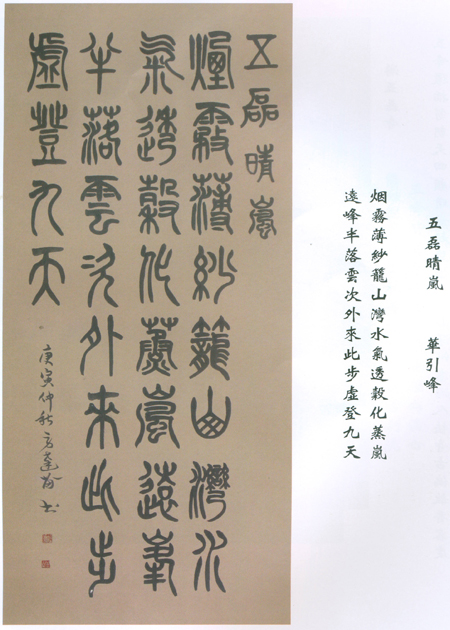 五磊晴嵐　華引峰
烟霧薄紗籠山灣水氣透穀化蒸嵐
遠峰半落雲次外來此步虛登九天
五磊晴嵐
煙霧薄紗籠山灣水
氣透穀化蒸嵐遠峯
半落雲次外來此步
虛登九天
庚寅仲秋 書